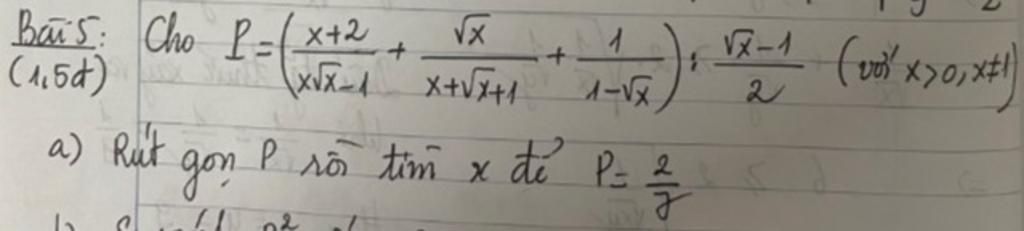 Bài 5: Cho P = ( (x+2)/(x√x-1) + √x/(x+√x+1) + 1/(1-√x) ) : (√x-1)/2 (với x>0, x≠1)
(1,5đ)
a) Rút gọn P rồi tìm x để P = 2/7